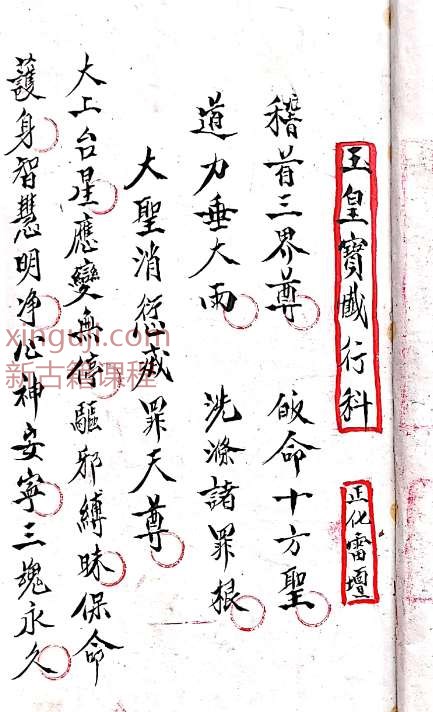 玉皇寶懺行科 正化雷壇
稽首三界尊 皈命十方聖
道力垂大雨 洗滌諸罪根
大聖消愆滅罪天尊
大上台星應變無停驅邪縛昧保命
護身智慧明净心神安寧三魂永久
xinguji.com
新古籍课程